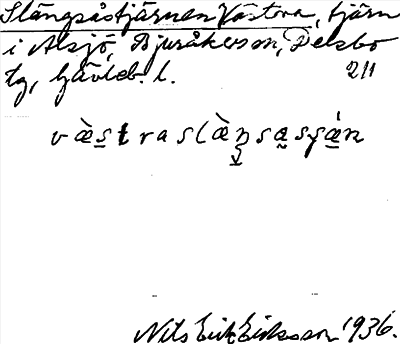 Slängsåstjärnen Västra, tjärn
i Alsjö, Bjuråkers sn, Delsbo
tg, Gävleb. l. 211
væ̀straslæ̀ŋsasyǽn
Nils Erik Eriksson 1936.